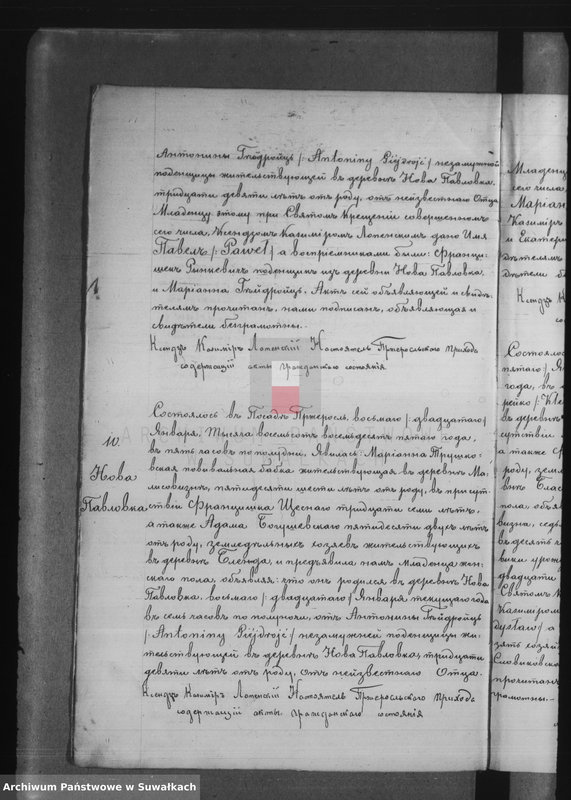 Антонины Гѣйдройць /: Antoniny Giejdrojć / незамужной
поденщицы жительствующей въ деревнѣ Нова Павловка,
тридцати девяти лѣтъ отъ роду, отъ неизвѣстнаго Отца.
Младенцу этому при Святомъ Крещеніи совершенномъ
сего числа, Ксендзомъ Казиміромъ Лопенскимъ дано Имя
Павелъ /: Paweł / а воспреемниками были: Франци-
шекъ поденщикъ изъ деревни Нова Павловка,
и Маріанна Гѣйдройць. Актъ сей объявляющей и свидѣ-
телямъ прочитанъ, нами подписанъ, объявляющая и
свидѣтели безграмотны.
Ксендзъ Казиміръ Лопенскій Настоятель Пржерослскаго Прихода
содержащій акты гражданскаго состоянія
10.
Нова
Павловка
Состоялось въ Посадѣ Пржеросль, восьмаго /: двадцатаго /
Января, Тысяча восемьсотъ восемьдесятъ пятаго года,
въ пять часовъ по полудни. Явилась: Маріанна Трушко-
вская повивальная бабка жительствующая въ деревнѣ Ма-
лисовизнѣ, пятидесяти шести лѣтъ отъ роду, въ присут-
ствіи Францишка Щеснаго тридцати семи лѣтъ,
а также Адама Богушевскаго пятидесяти двухъ лѣтъ
отъ роду, земледѣльныхъ хозяевъ жительствующихъ
въ деревнѣ Бленда, и предъявила намъ Младенца жен-
скаго пола, объявляя: что онъ родился въ деревнѣ Нова
Павловка, восьмаго /: двадцатаго / Января текущаго года
въ семь часовъ по полуночи, отъ Антонины Гѣйдройць
/: Antoniny Giejdrojć / незамужней поденщицы жи-
тельствующей въ деревнѣ Нова Павловка, тридцати
девяти лѣтъ отъ роду, отъ неизвѣстнаго Отца.
Ксендзъ Казиміръ Лопенскій Настоятель Пржерослскаго Прихода
содержащій акты гражданскаго состоянія
Младенцу
сего числа
Маріан
Казиміръ
и Екатери
дѣтелямъ
дѣтели бе
Состоялось
пятаго / Ян
года, въ
въ деревнѣ
сутствіи
а также
роду, земл
пола, объя
въ десять ч
двадцати
Святомъ К
Казиміром
прочитан
грамотны.
Archiwum Państwowe w Suwałkach